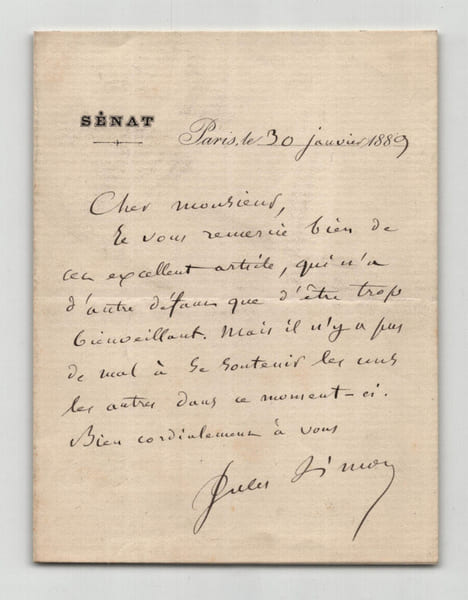 SÉNAT
Paris, le 30 janvier 1889
Cher monsieur,
Je vous remercie bien de
cet excellent article, qui n'a
d'autre défaut que d'être trop
bienveillant. Mais il n'y a pas
de mal à se soutenir les uns
les autres dans ce moment-ci.
Bien cordialement à vous
Jules Simon